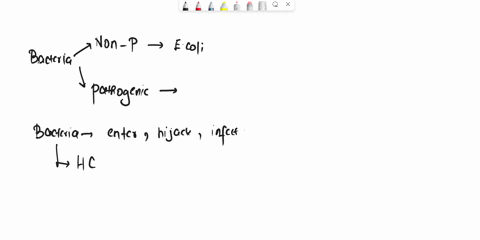 Non-P → E coli
Bacteria
pathogenic →
Bacteria → enter, hijack, infect
→ HC